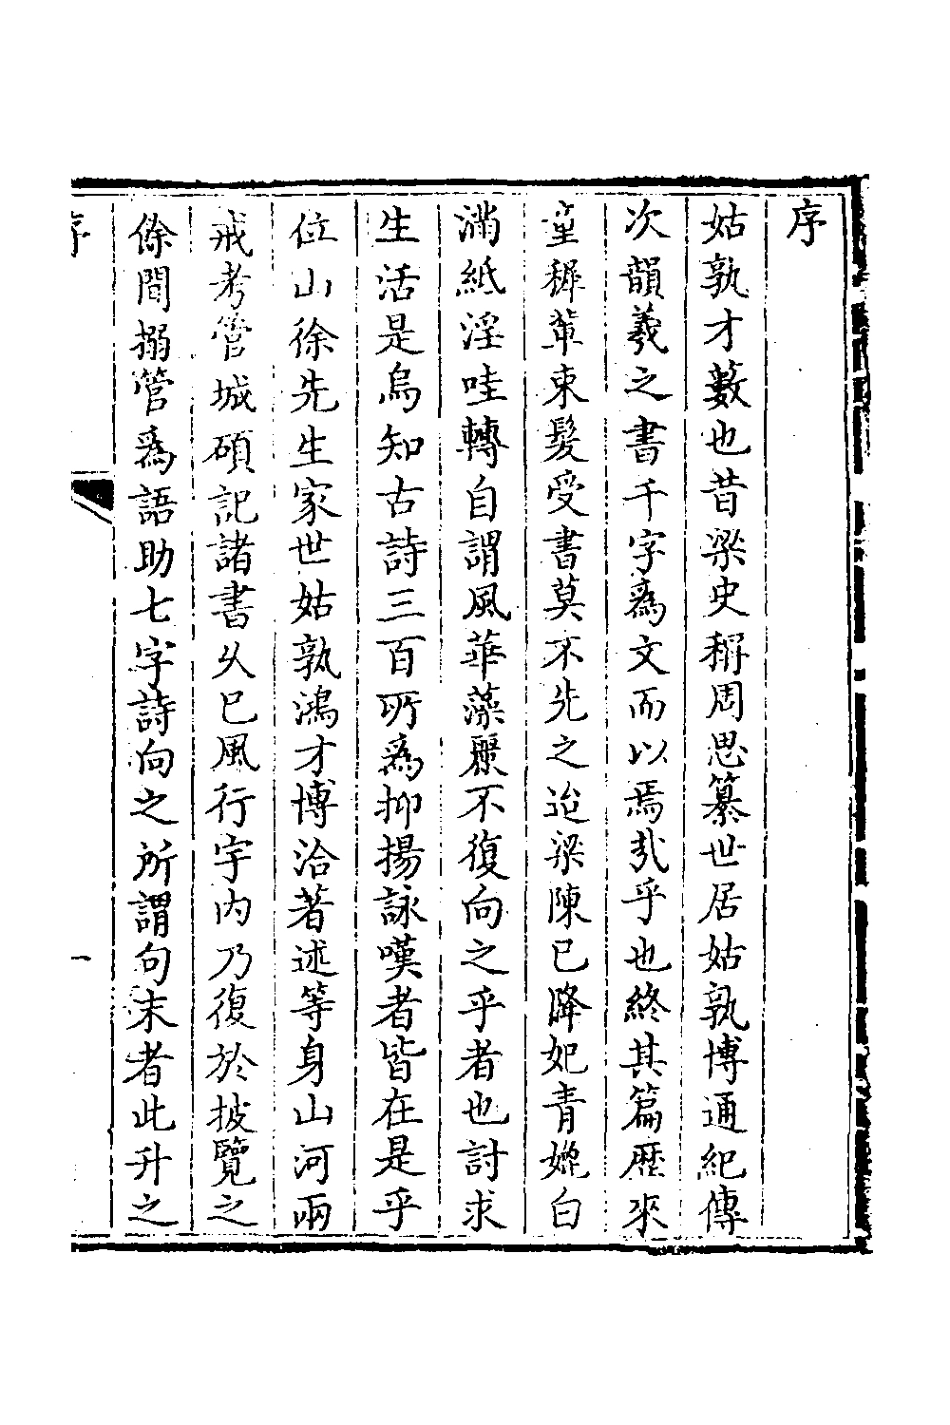 序
姑孰才藪也昔梁史稱周思纂世居姑孰博通紀傳
次韻羲之書千字爲文而以焉哉乎也終其篇歷來
童穉輩束髮受書莫不先之迨梁陳已降妃青媲白
滿紙淫哇轉自謂風華藻麗不復向之乎者也討求
生活是烏知古詩三百所爲抑揚詠嘆者皆在是乎
位山徐先生家世姑孰鴻才博洽著述等身山河兩
戒考管城碩記諸書久已風行宇内乃復於披覽之
餘間搦管爲語助七字詩向之所謂句末者此升之
序
一